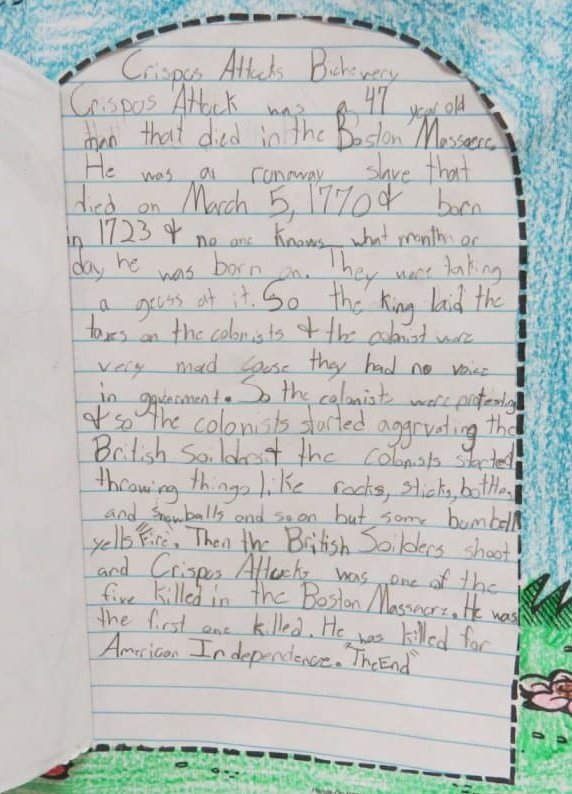 Crispas Attacks Bicheivery
Crispas Attack was a 47 year old
man that died in the Boston Massacre.
He was a runaway slave that
died on March 5, 1770 & born
in 1723 & no one knows what month or
day he was born on. They were taking
a geuss at it. So the king laid the
taxes on the colonists & the colonist were
very mad cause they had no voice
in goverment. So the colonists were protesting
& so the colonists started aggrvating the
British Soilders & the colonists started
throwing things like rocks, sticks, bottles,
and snowballs and so on but some bumbell
yells "Fire". Then the British Soilders shoot
and Crispus Attucks was one of the
five killed in the Boston Massacre. He was
the first one killed. He was killed for
American Independence. "The End"